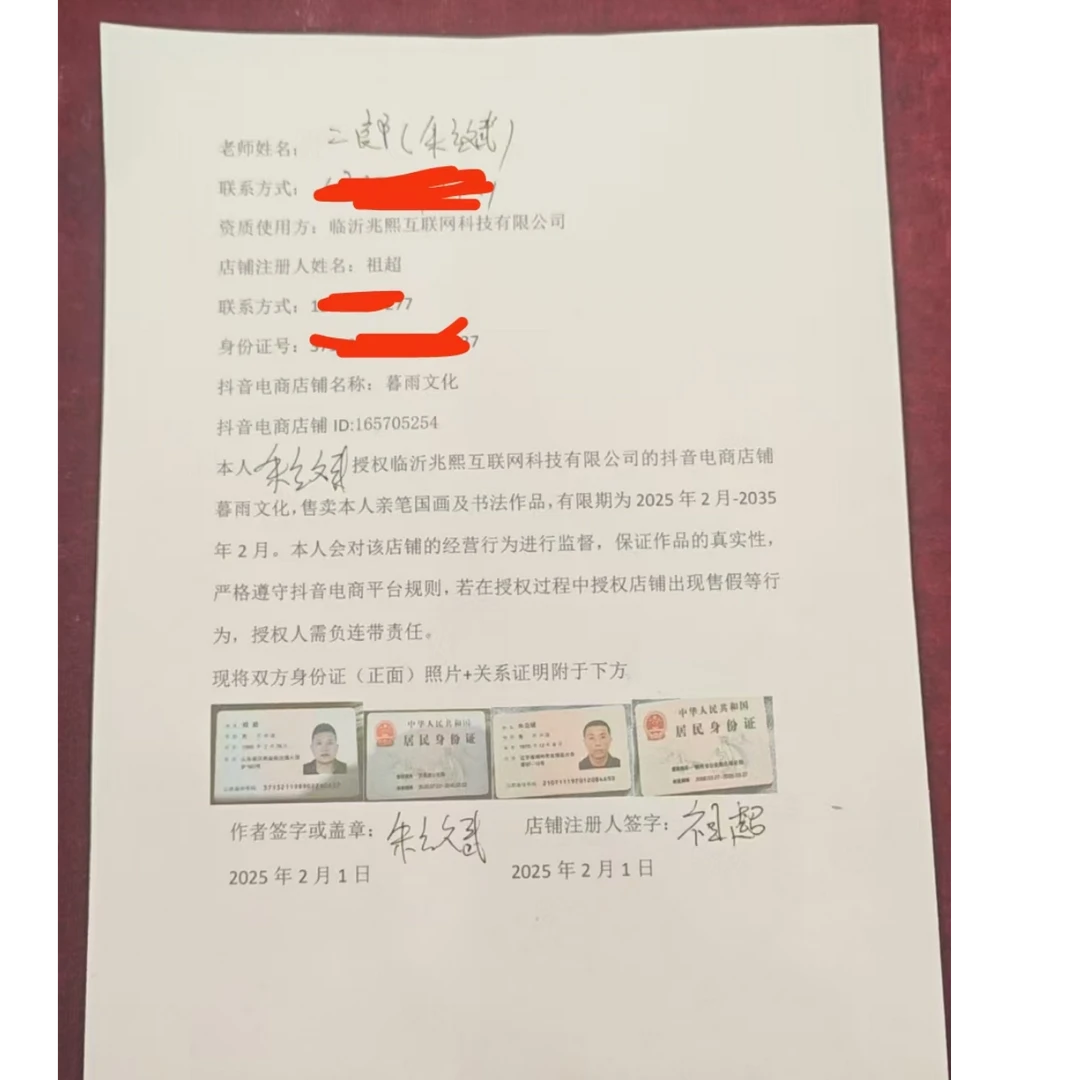 老师姓名：二郎（朱立斌）
联系方式：
资质使用方：临沂兆熙互联网科技有限公司
店铺注册人姓名：祖超
联系方式：
身份证号：
抖音电商店铺名称：暮雨文化
抖音电商店铺 ID:165705254
本人 授权临沂兆熙互联网科技有限公司的抖音电商店铺
暮雨文化，售卖本人亲笔国画及书法作品，有限期为 2025 年 2 月-2035
年 2 月。本人会对该店铺的经营行为进行监督，保证作品的真实性，
严格遵守抖音电商平台规则，若在授权过程中授权店铺出现售假等行
为，授权人需负连带责任。
现将双方身份证（正面）照片+关系证明附于下方
中华人民共和国
居民身份证
中华人民共和国
居民身份证
作者签字或盖章：
店铺注册人签字：祖超
2025 年 2 月 1 日
2025 年 2 月 1 日